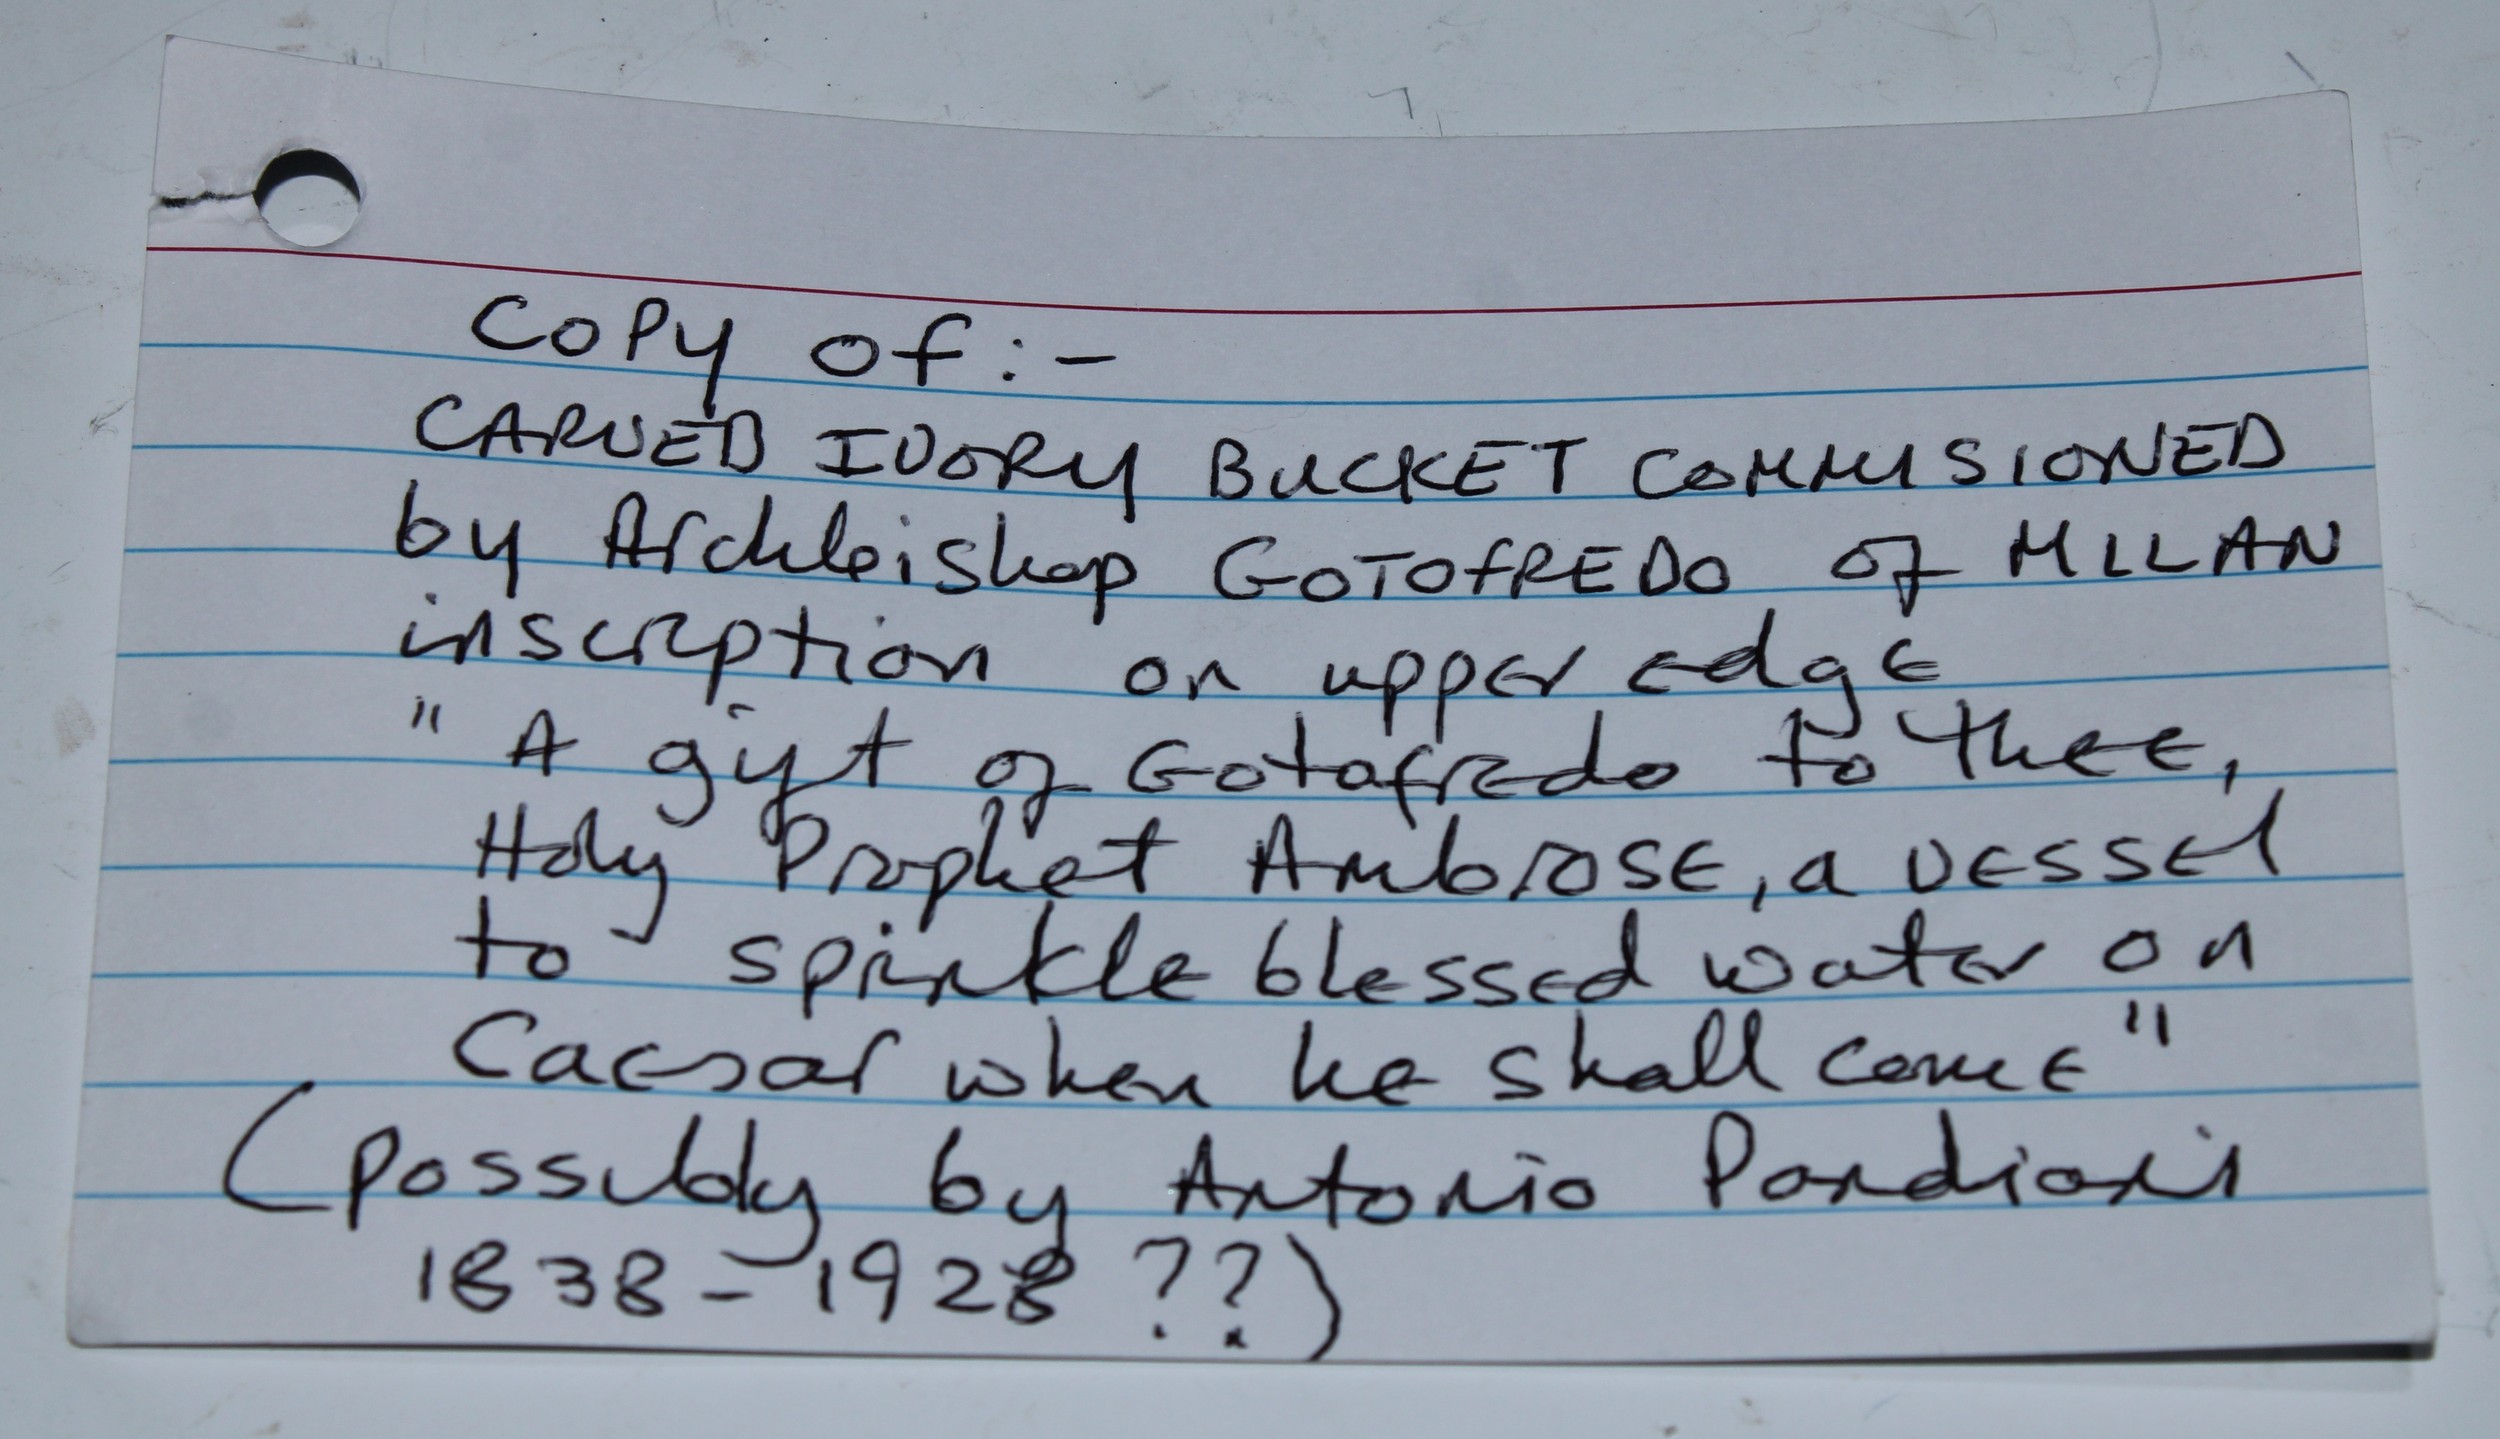 COPY of :-
CARVED IVORY BUCKET COMMISIONED
by Archbishop GOTOFREDO of MILAN
inscription on upper edge
"A gift of Gotofredo to thee,
Holy Prophet Ambrose, a vessel
to sprinkle blessed water on
Caesar when he shall come"
(possibly by Antonio Pandiani
1838-1928 ??)